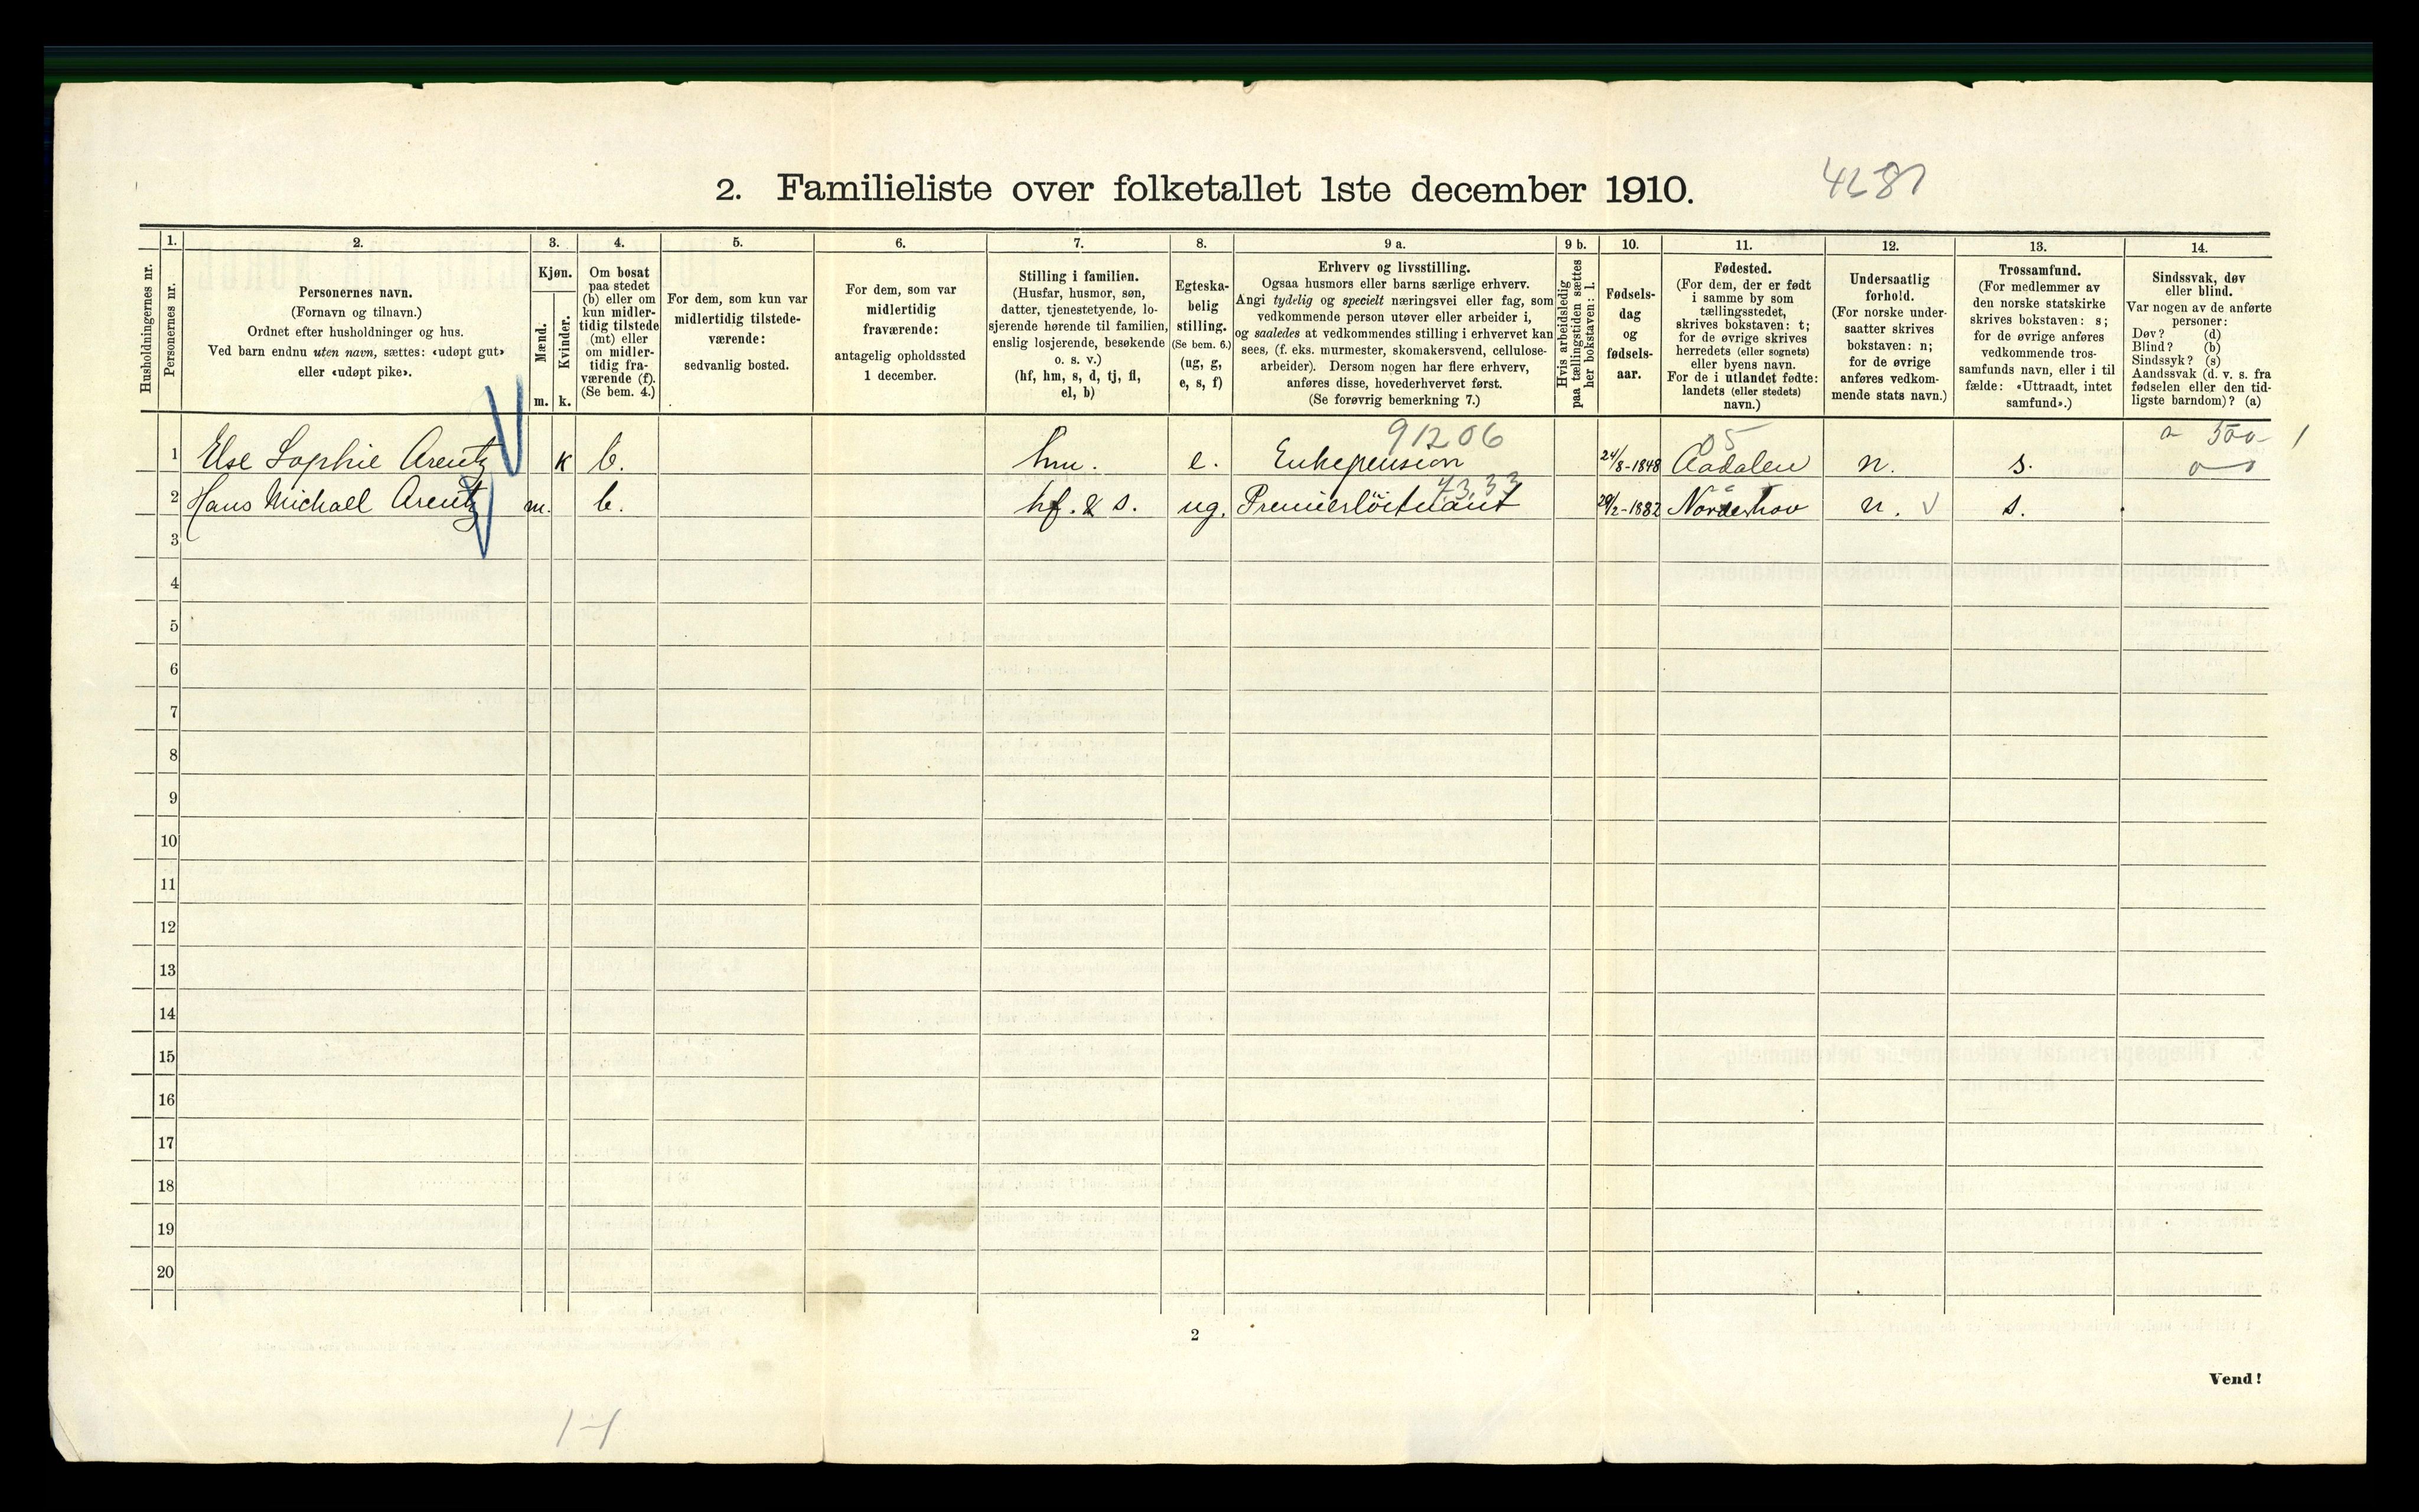 2. Familieliste over folketallet 1ste december 1910.
Husholdningernes nr.
1.
Personernes nr.
2.
Personernes navn.
(Fornavn og tilnavn.)
Ordnet efter husholdninger og hus.
Ved barn endnu uten navn, sættes: «udøpt gut»
eller «udøpt pike».
3.
Kjøn.
Mænd.
Kvinder.
m.
k.
4.
Om bosat
paa stedet
(b) eller om
kun midler-
tidig tilstede
(mt) eller
om midler-
tidig fra-
værende (f).
(Se bem. 4.)
5.
For dem, som kun var
midlertidig tilstede-
værende:
sedvanlig bosted.
6.
For dem, som var
midlertidig
fraværende:
antagelig opholdssted
1 december.
7.
Stilling i familien.
(Husfar, husmor, søn,
datter, tjenestetyende, lo-
sjerende hørende til familien,
enslig losjerende, besøkende
o. s. v.)
(hf, hm, s, d, tj, fl,
el, b)
8.
Egteska-
belig
stilling.
(Se bem. 6.)
(ug, g,
e, s, f)
9 a.
Erhverv og livsstilling.
Ogsaa husmors eller barns særlige erhverv.
Angi tydelig og specielt næringsvei eller fag, som
vedkommende person utøver eller arbeider i,
og saaledes at vedkommendes stilling i erhvervet kan
sees, (f. eks. murmester, skomakersvend, cellulose-
arbeider). Dersom nogen har flere erhverv,
anføres disse, hovederhvervet først.
(Se forøvrig bemerkning 7.)
9 b.
Hvis arbeidsledig
paa tællingstiden sættes
her bokstaven: l.
10.
Fødsels-
dag
og
fødsels-
aar.
11.
Fødested.
(For dem, der er født
i samme by som
tællingsstedet,
skrives bokstaven: t;
for de øvrige skrives
herredets (eller sognets)
eller byens navn.
For de i utlandet fødte:
landets (eller stedets)
navn.)
12.
Undersaatlig
forhold.
(For norske under-
saatter skrives
bokstaven: n;
for de øvrige
anføres vedkom-
mende stats navn.)
13.
Trossamfund.
(For medlemmer av
den norske statskirke
skrives bokstaven: s;
for de øvrige anføres
vedkommende tros-
samfunds navn, eller i til
fælde: «Uttraadt, intet
samfund».)
14.
Sindssvak, døv
eller blind.
Var nogen av de anførte
personer:
Døv? (d)
Blind? (b)
Sindssyk? (s)
Aandssvak (d. v. s. fra
fødselen eller den tid-
ligste barndom)? (a)
91206 05
1 Else Sophie Arentz k b. hm. e. Enkepension 24/8-1848 Aadalen n. s.
2 Hans Michael Arentz m. b. hf. & s. ug. Premierløitnant 29/2-1882 Norderhov n. s.
3
4
5
6
7
8
9
10
11
12
13
14
15
16
17
18
19
20
2
Vend!